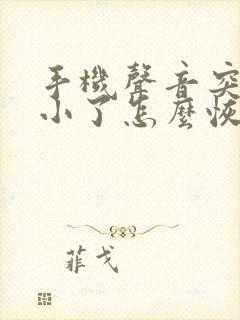 手機聲音突
小了怎麼恢
菲戈